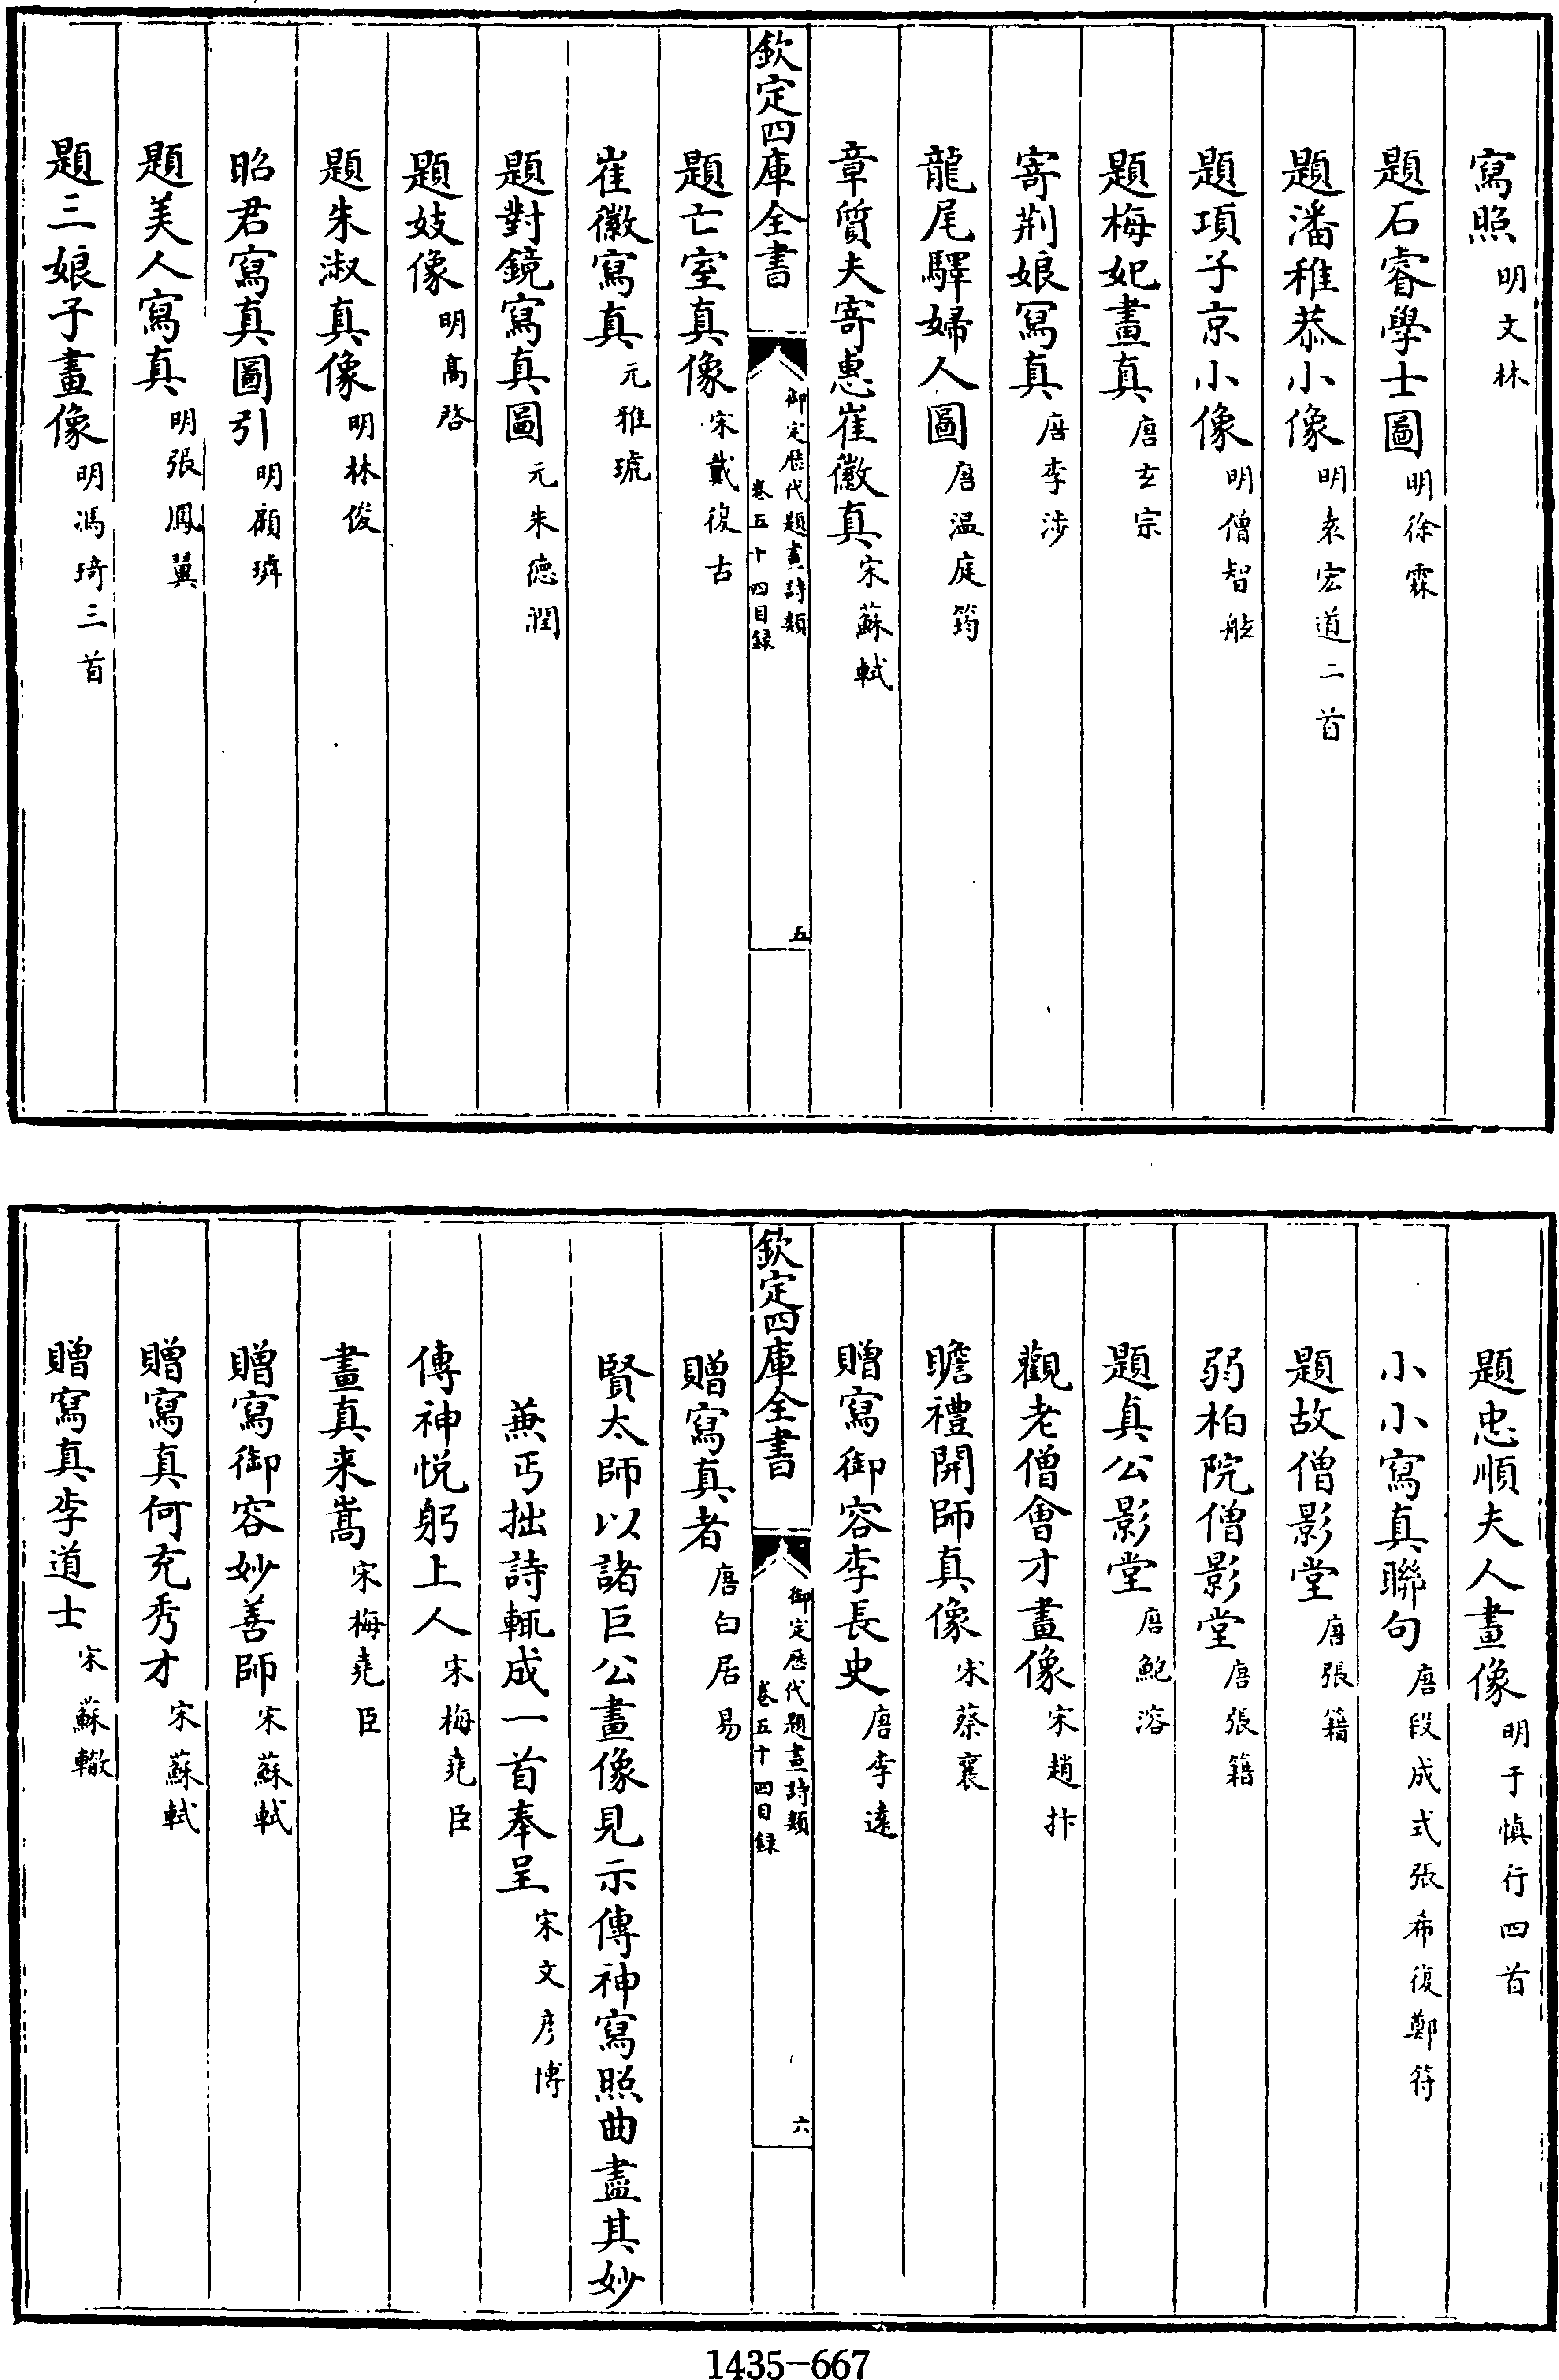 寫照明文林
題石睿學士圖明徐霖
題潘稚恭小像明袁宏道二首
題項子京小像明僧智舷
題梅妃畫真唐玄宗
寄荆娘寫真唐李涉
龍尾驛婦人圖唐温庭筠
章質夫寄惠崔徽真宋蘇軾
欽定四庫全書
御定歴代題畫詩類
卷五十四目録
五
題亡室真像宋戴復古
崔徽寫真元雅琥
題對鏡寫真圖元朱德潤
題妓像明高啓
題朱淑真像明林俊
昭君寫真圖引明顧璘
題美人寫真明張鳳翼
題三娘子畫像明馮琦三首
題忠順夫人畫像明于慎行四首
小小寫真聯句唐段成式張希復鄭符
題故僧影堂唐張籍
弱柏院僧影堂唐張籍
題真公影堂唐鮑溶
觀老僧會才畫像宋趙抃
瞻禮開師真像宋蔡襄
贈寫御容李長史唐李遠
欽定四庫全書
御定歴代題畫詩類
卷五十四目録
六
贈寫真者唐白居易
賢太師以諸巨公畫像見示傳神寫照曲盡其妙
兼丐拙詩輒成一首奉呈宋文彦博
傳神悦躬上人宋梅堯臣
畫真来嵩宋梅堯臣
贈寫御容妙善師宋蘇軾
贈寫真何充秀才宋蘇軾
贈寫真李道士宋蘇轍
1435-667